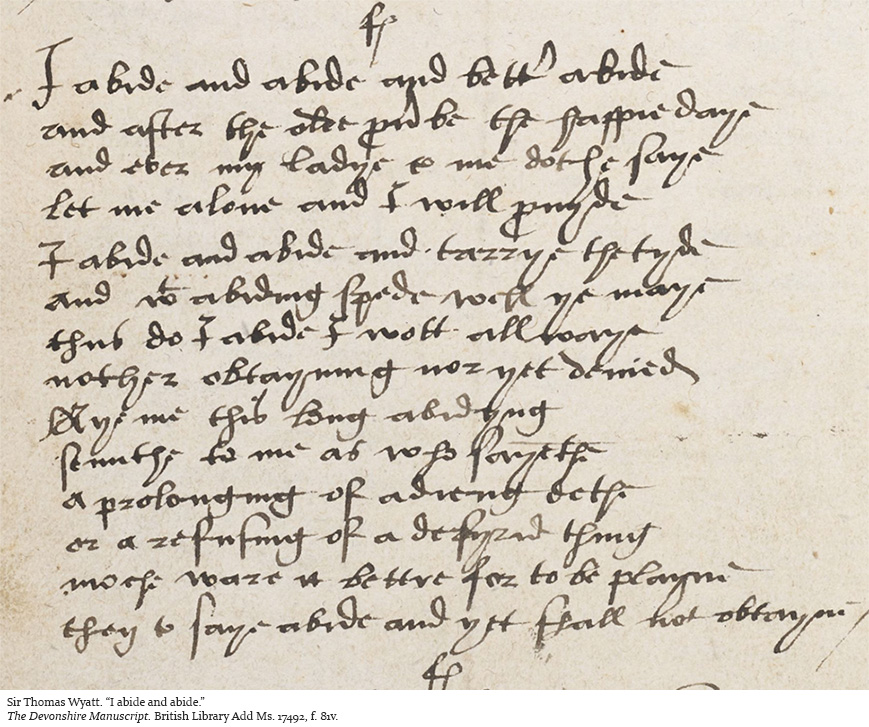 I abide and abide and bettr abide
and after the olde pūbe the happie daye
and ever my ladye to me dothe saye
let me alone and I will pruyde
I abide and abide and tarrye the tyde
and wt abiding spede well ye maye
thus do I abide I wott allwaye
nother obtayning nor yet denied
Aye me this long abidyng
semithe to me as who sayethe
a prolonging of a dieng dethe
or a refusing of a desyrid thing
moche ware it bettre for to be playne
then to saye abide and yet shall not obtayne
Sir Thomas Wyatt. “I abide and abide.”
The Devonshire Manuscript. British Library Add Ms. 17492, f. 81v.